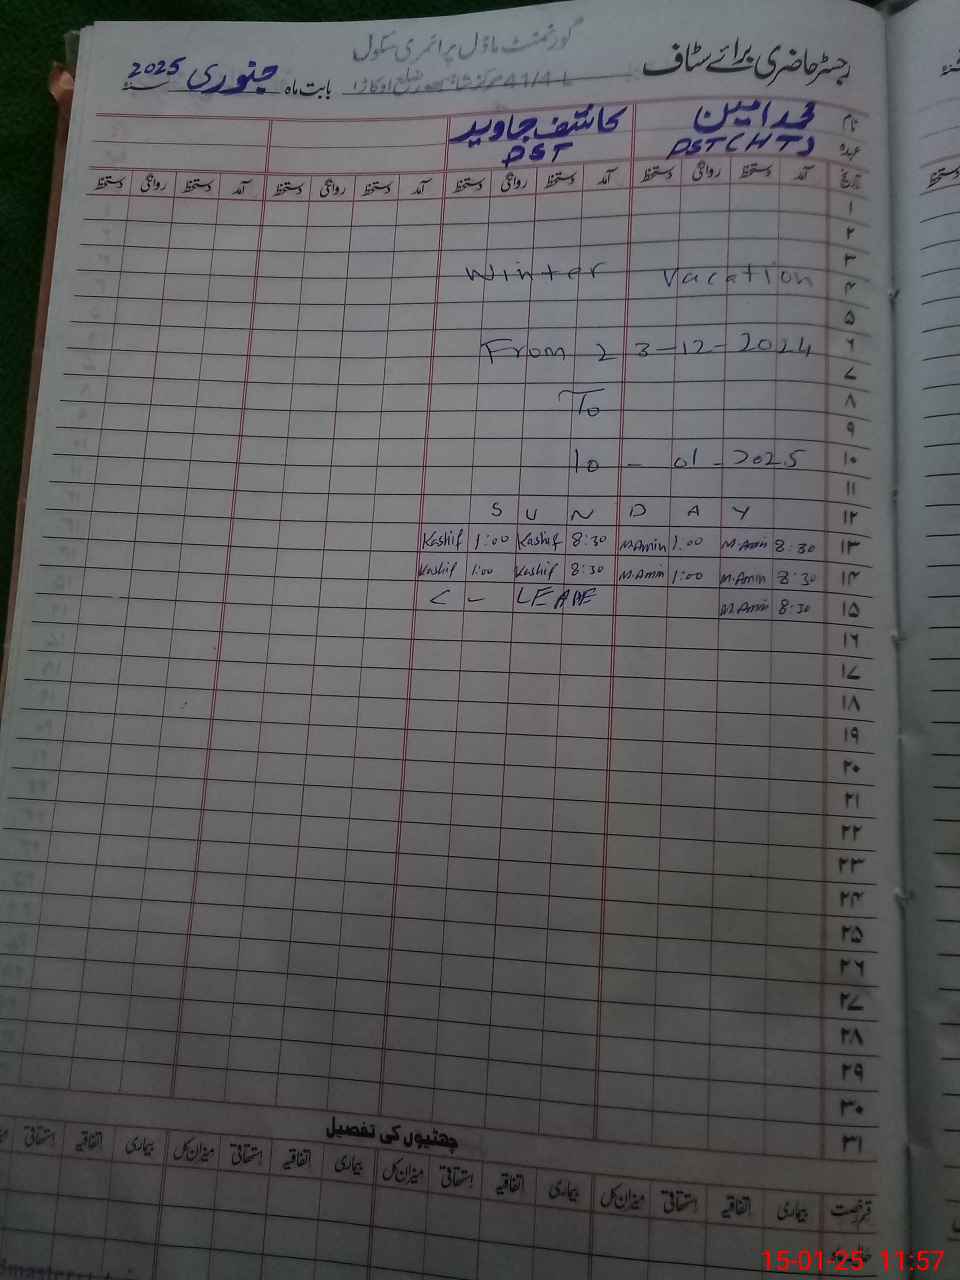 گورنمنٹ ماڈل پرائمری سکول
رجسٹر حاضری برائے سٹاف
41/4 L مرکز ضلع اوکاڑا
بابت ماہ جنوری 2025
نام محمد امین کاشف جاوید
عہدہ PST(HT) PST
تاریخ آمد دستخط روانگی دستخط آمد دستخط روانگی دستخط آمد دستخط روانگی دستخط آمد دستخط روانگی دستخط
۱
۲
۳
Winter Vacation
۴
۵
From 23-12-2024 ۶
۷
To ۸
۹
10-01-2025 ۱۰
۱۱
SUNDAY ۱۲
Kashif 1:00 Kashif 8:30 M.Amin 1:00 M.Amin 8:30 ۱۳
Kashif 1:00 Kashif 8:30 M.Amin 1:00 M.Amin 8:30 ۱۴
C - LEAVE M.Amin 8:30 ۱۵
۱۶
۱۷
۱۸
۱۹
۲۰
۲۱
۲۲
۲۳
۲۴
۲۵
۲۶
۲۷
۲۸
۲۹
۳۰
۳۱
چھٹیوں کی تفصیل
قسم رخصت بیماری اتفاقیہ استحقاقی میزان کل بیماری اتفاقیہ استحقاقی میزان کل بیماری اتفاقیہ استحقاقی میزان کل بیماری اتفاقیہ استحقاقی
15-01-25 11:57